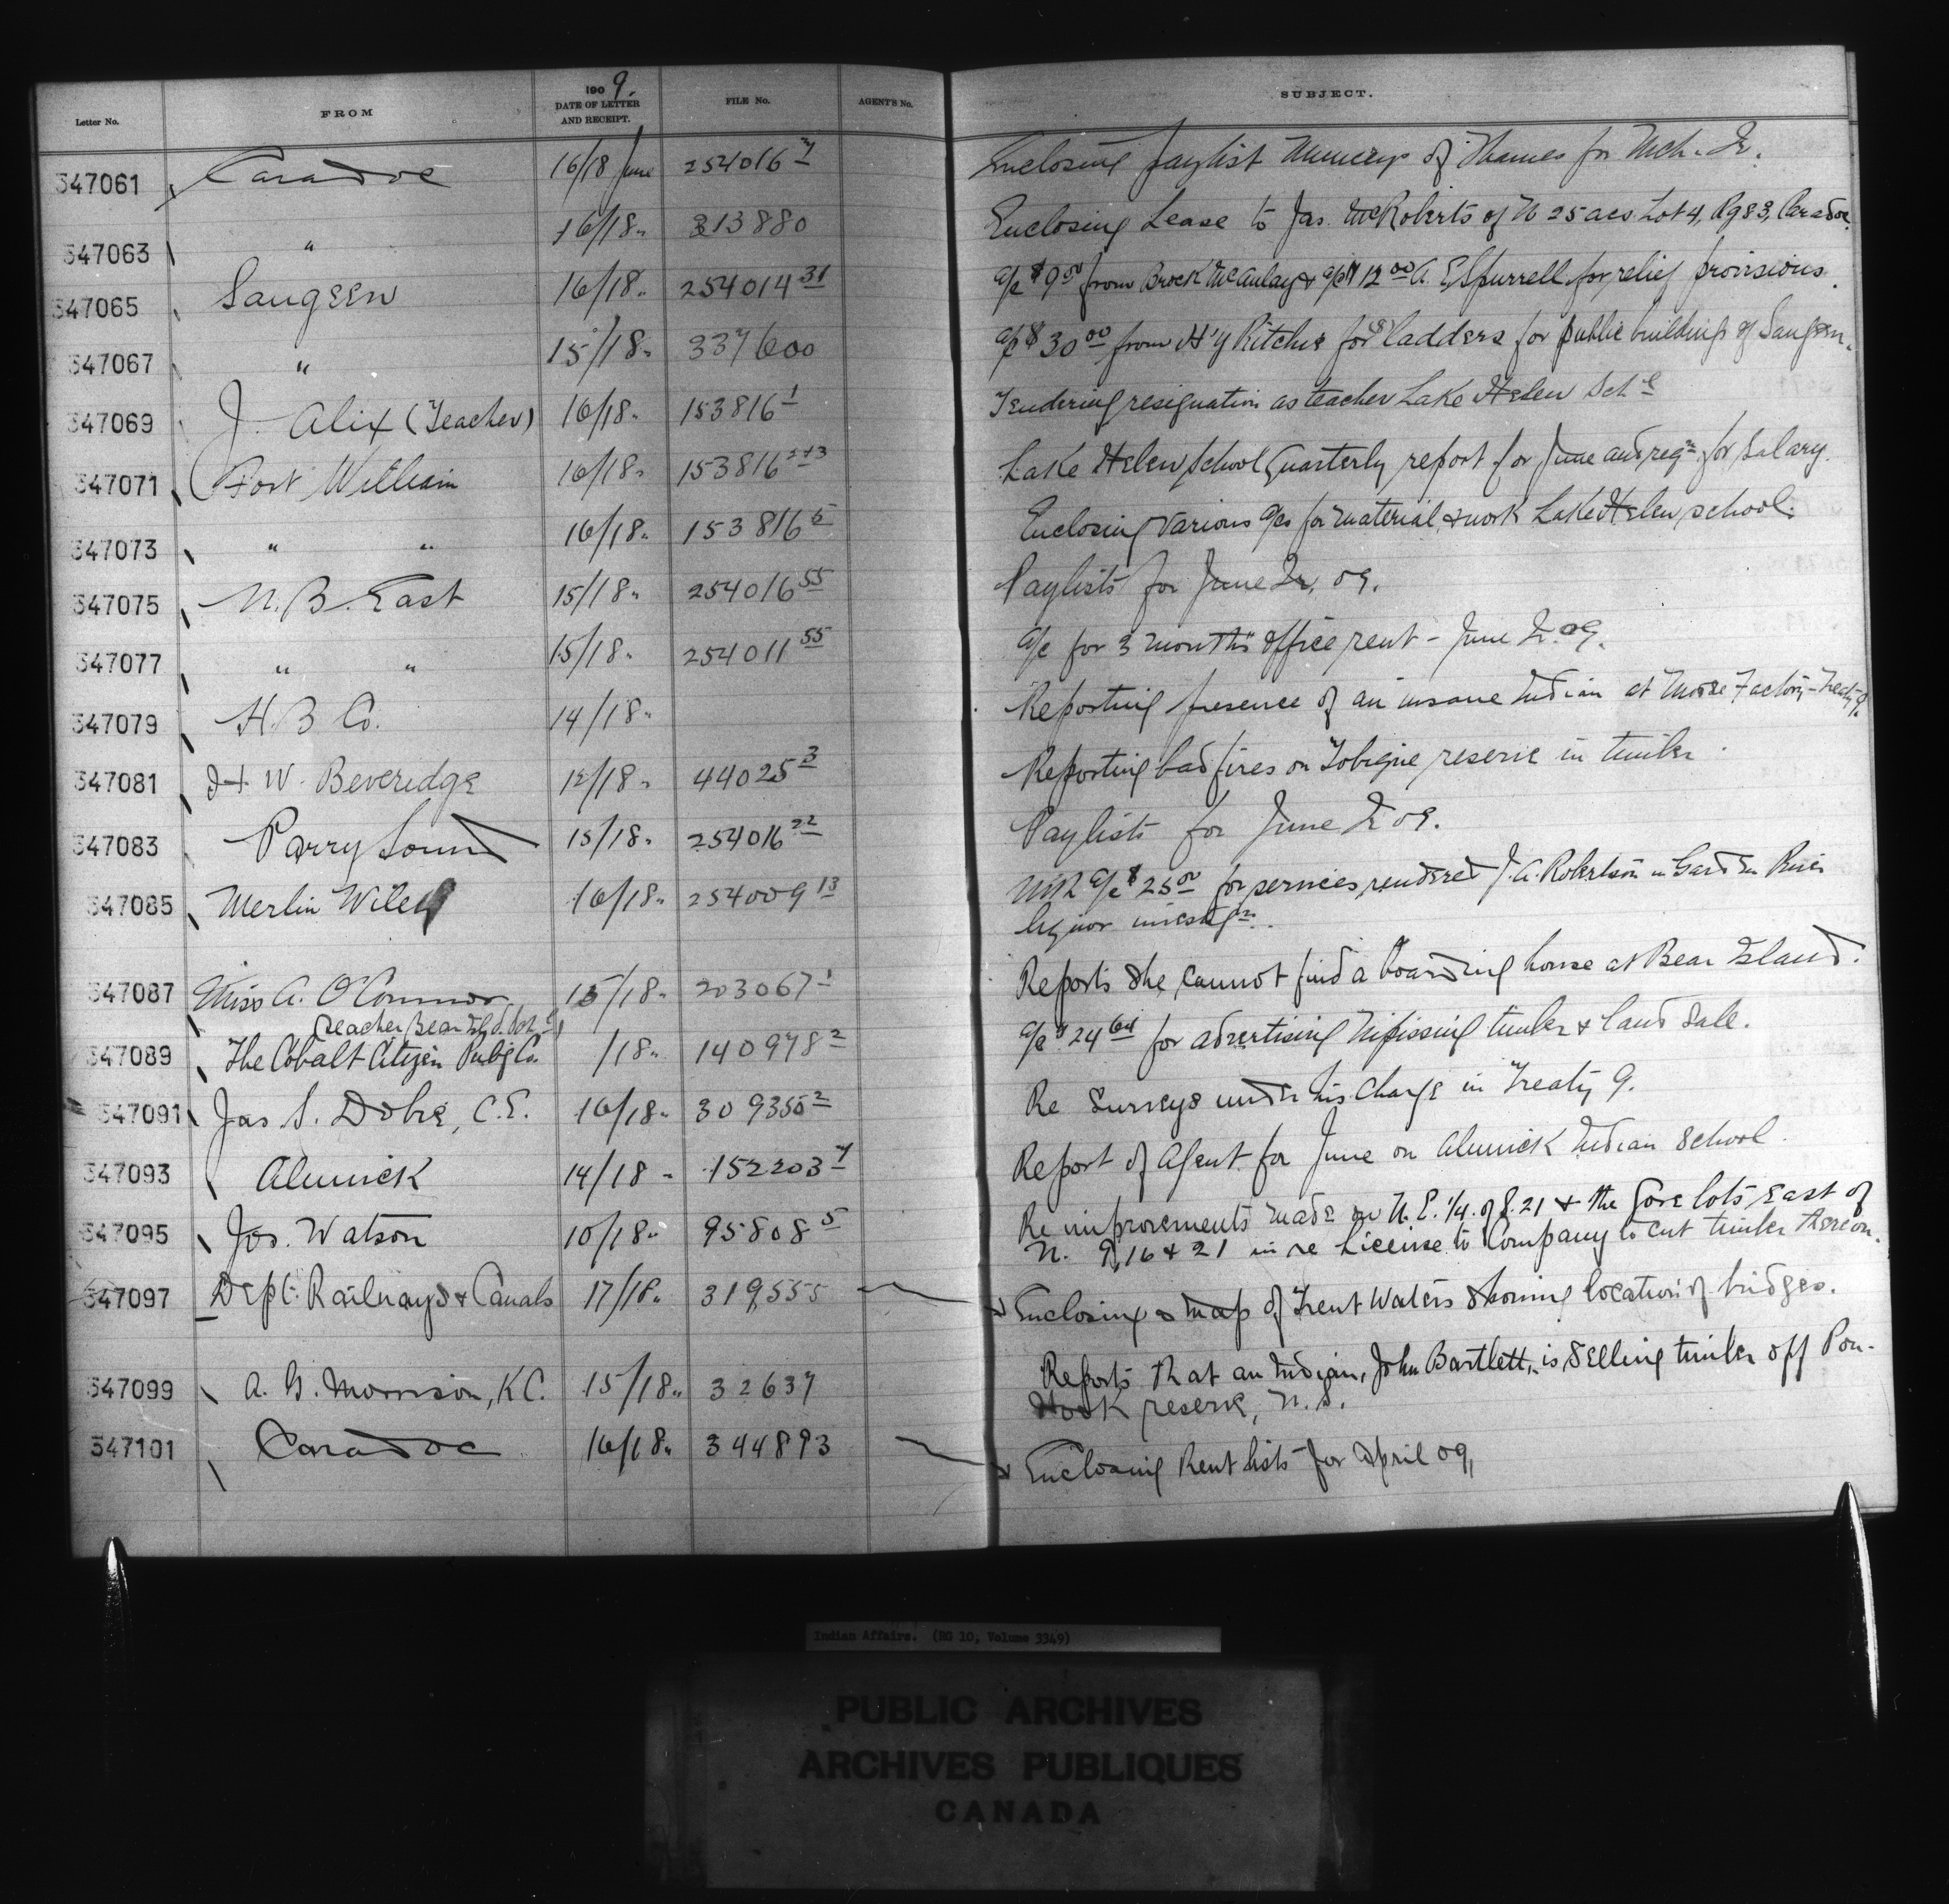 Letter No. FROM 1909. DATE OF LETTER AND RECEIPT. FILE No. AGENT'S No. SUBJECT.
347061 Caradoc 16/18 June 254016 7 Enclosing paylist Munceys of Thames for Mch. Qr.
347063 " 16/18 " 313880 Enclosing Lease to Jas. McRoberts of N 25 acs Lot 4, Rg 83, Caradoc.
347065 Saugeen 16/18 " 254014 31 a/c $9 50 from Brock McAulay & a/c $12 00 A. E. Spurrell for relief provisions.
347067 " 15/18 " 337600 a/c $30 00 from H'y Ritchie for (8) ladders for public buildings of Saugeen.
347069 J. Alix (Teacher) 16/18 " 153816 1 Tendering resignation as teacher Lake Helen Sch l
347071 Fort William 16/18 " 153816 2+3 Lake Helen School Quarterly report for June and reqn for Salary.
347073 " " 16/18 " 153816 5 Enclosing various a/cs for material & work Lake Helen school.
347075 N. B. East 15/18 " 254016 55 Paylists for June Qr, 09.
347077 " " 15/18 " 254011 55 a/c for 3 months office rent - June Qr. 09.
347079 H. B Co. 14/18 " Reporting presence of an insane Indian at Moose Factory - Treaty 9.
347081 W. Beveridge 12/18 " 44025 3 Reporting bad fires on Tobique reserve in timber.
347083 Parry Sound 15/18 " 254016 22 Paylists for June Qr 09.
347085 Merlin Wiley 16/18 " 254009 13 With a/c $25 00 for services rendered J. A. Robertson in Garden River
liquor investign.
347087 Miss A. O'Connor, 15/18 " 203067 1 Reports she cannot find a boarding house at Bear Island.
Teacher Bear Isld. Sch l
347089 The Cobalt Citizen Pub'g Co. /18 " 140978 2 a/c $24 64 for advertising Nipissing timber & land Sale.
347091 Jas S. Dobie, C.E. 16/18 " 309350 2 Re Surveys under his charge in Treaty 9.
347093 Alnwick 14/18 " 152203 7 Report of Agent for June on Alnwick Indian School.
347095 Jos. Watson 10/18 " 95808 5 Re improvements made on N. E. 1/4. of S. 21 & the Gore lots East of
N. 9, 16 & 21 in re License to Company to cut timber thereon.
347097 Dept. Railways & Canals 17/18 " 319555 Enclosing a map of Trent Waters showing location of bridges.
347099 A. G. Morrison, K.C. 15/18 " 32637 Reports that an Indian, John Bartlett, is selling timber off Pon-
Hook reserve, N.S.
347101 Caradoc 16/18 " 344893 Enclosing Rent lists for April 09,
Indian Affairs. (RG 10, Volume 3349)
PUBLIC ARCHIVES
ARCHIVES PUBLIQUES
CANADA